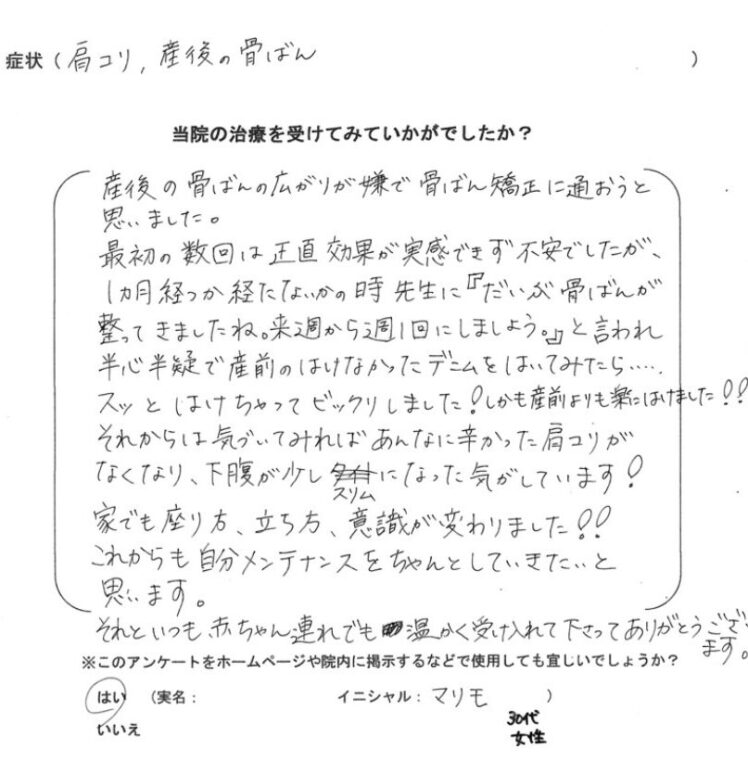 症状（肩コリ, 産後の骨ばん ）
当院の治療を受けてみていかがでしたか？
産後の骨ばんの広がりが嫌で骨ばん矯正に通おうと
思いました。
最初の数回は正直効果が実感できず不安でしたが、
1カ月経つか経たないかの時先生に『だいぶ骨ばんが
整ってきましたね。来週から週1回にしましよう。』と言われ
半心半疑で産前のはけなかったデニムをはいてみたら…‥
スッとはけちゃってビックリしました！しかも産前よりも楽にはけました！！
それからは気づいてみればあんなに辛かった肩コリが
なくなり、下腹が少し スリム になった気がしています！
家でも座り方、立ち方、意識が変わりました！！
これからも自分メンテナンスをちゃんとしていきたいと
思います。
それといつも赤ちゃん連れでも温かく受け入れて下さってありがとうござい
ます。
※このアンケートをホームページや院内に掲示するなどで使用しても宜しいでしょうか？
はい （実名： イニシャル：マリモ ）
いいえ
30代
女性